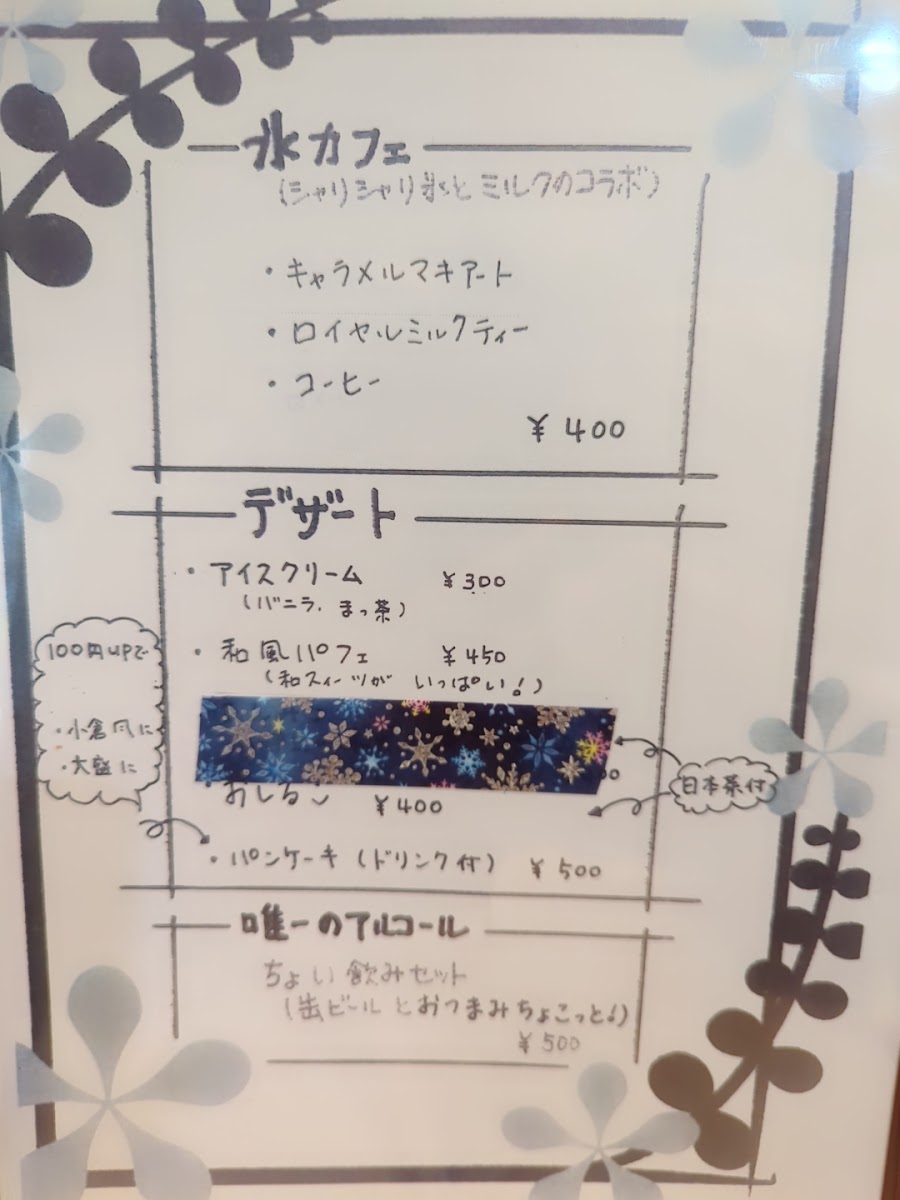 氷カフェ
(シャリシャリ氷とミルクのコラボ)
・キャラメルマキアート
・ロイヤルミルクティー
・コーヒー
¥400
デザート
・アイスクリーム ¥300
(バニラ、まっ茶)
・和風パフェ ¥450
(和スイーツが いっぱい!)
・おしるこ ¥400
・パンケーキ(ドリンク付) ¥500
100円UPで
・小倉風に
・大盛に
日本茶付
唯一のアルコール
ちょい飲みセット
(缶ビールとおつまみちょこっと!)
¥500